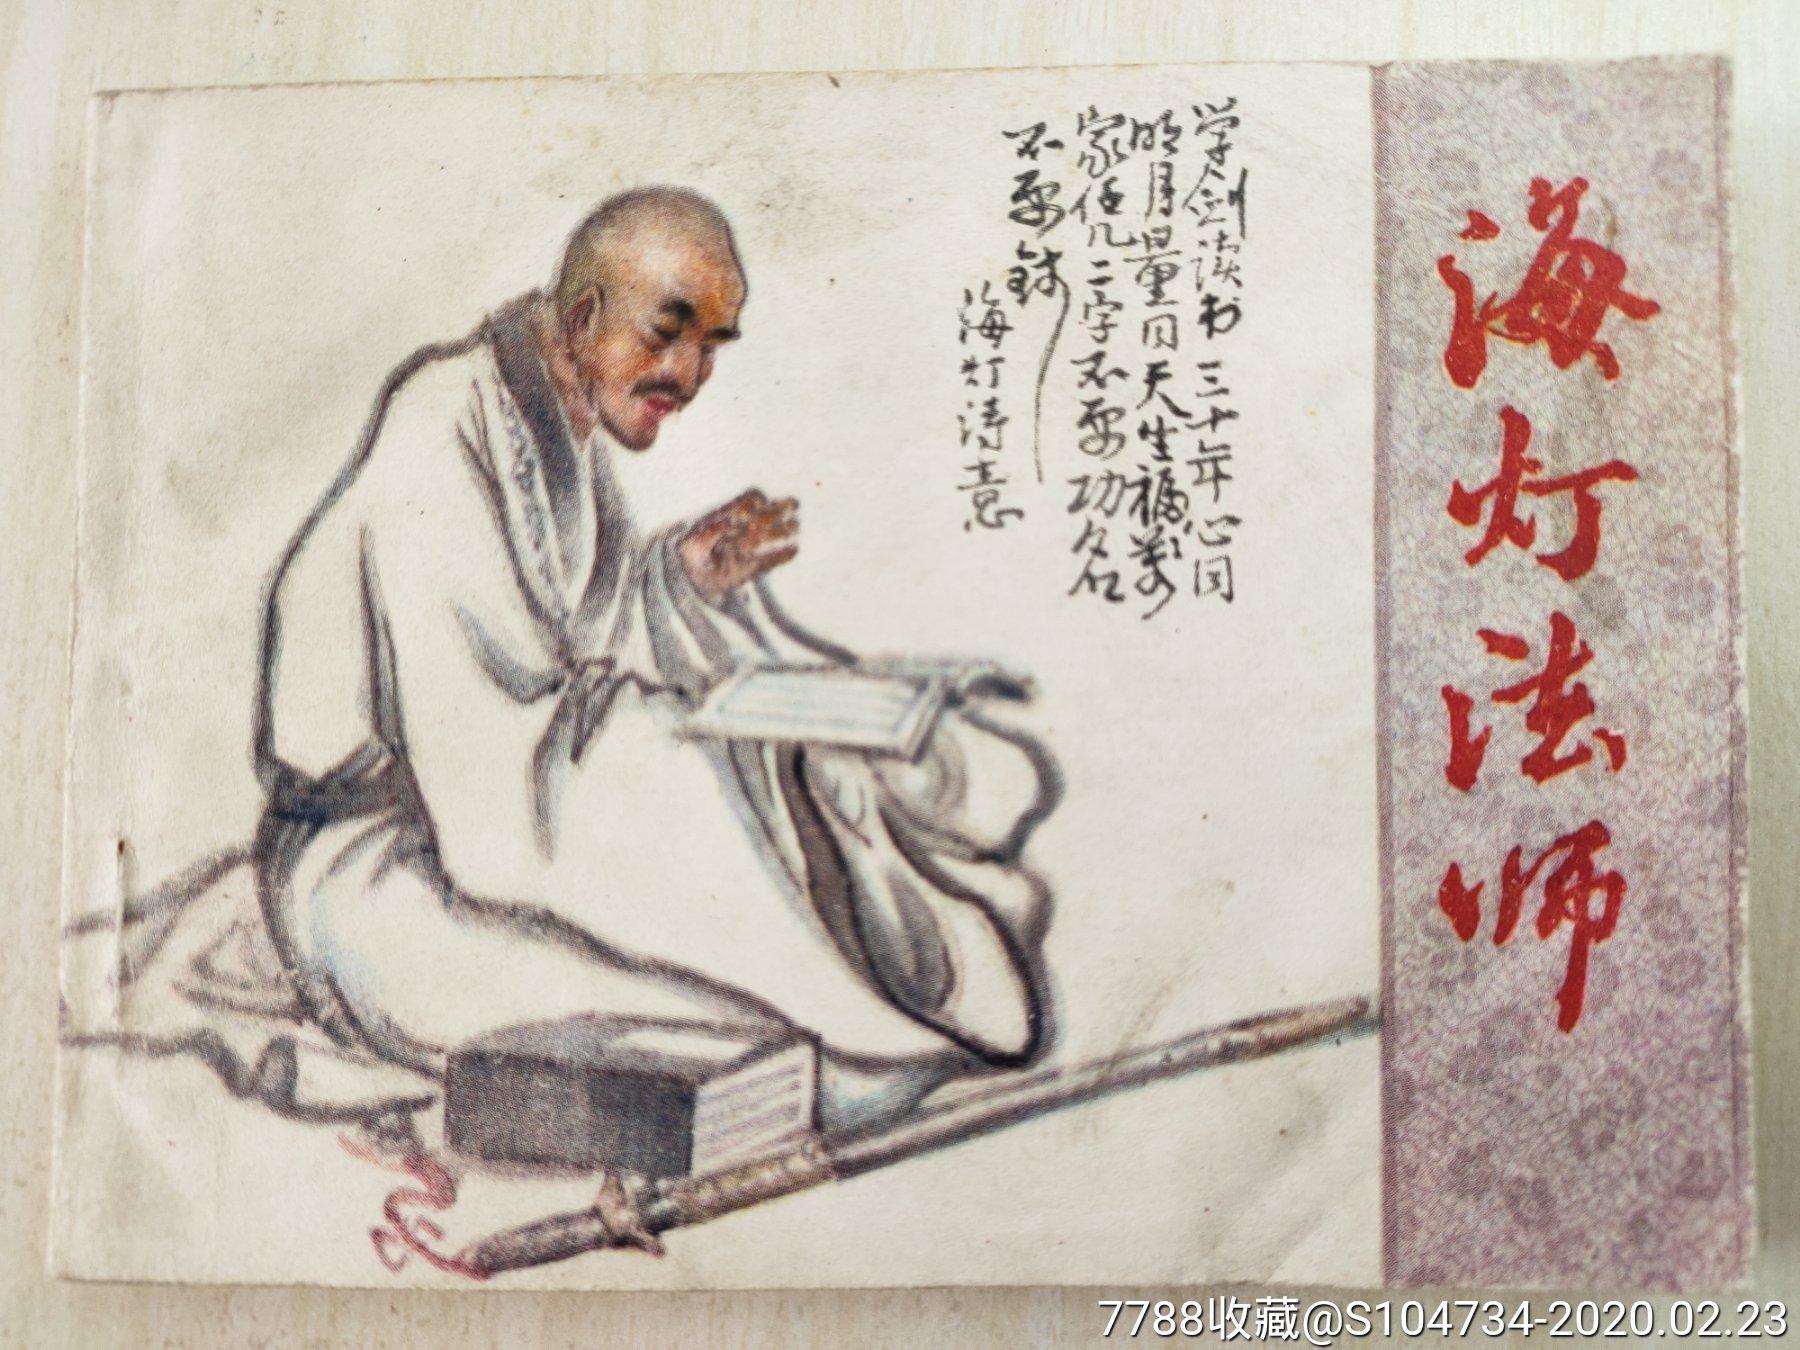 海灯法师
学剑读书三十年心同
明月量同天生福萬
家 二字不要功名
不要钱
海灯诗意
7788收藏@S104734-2020.02.23